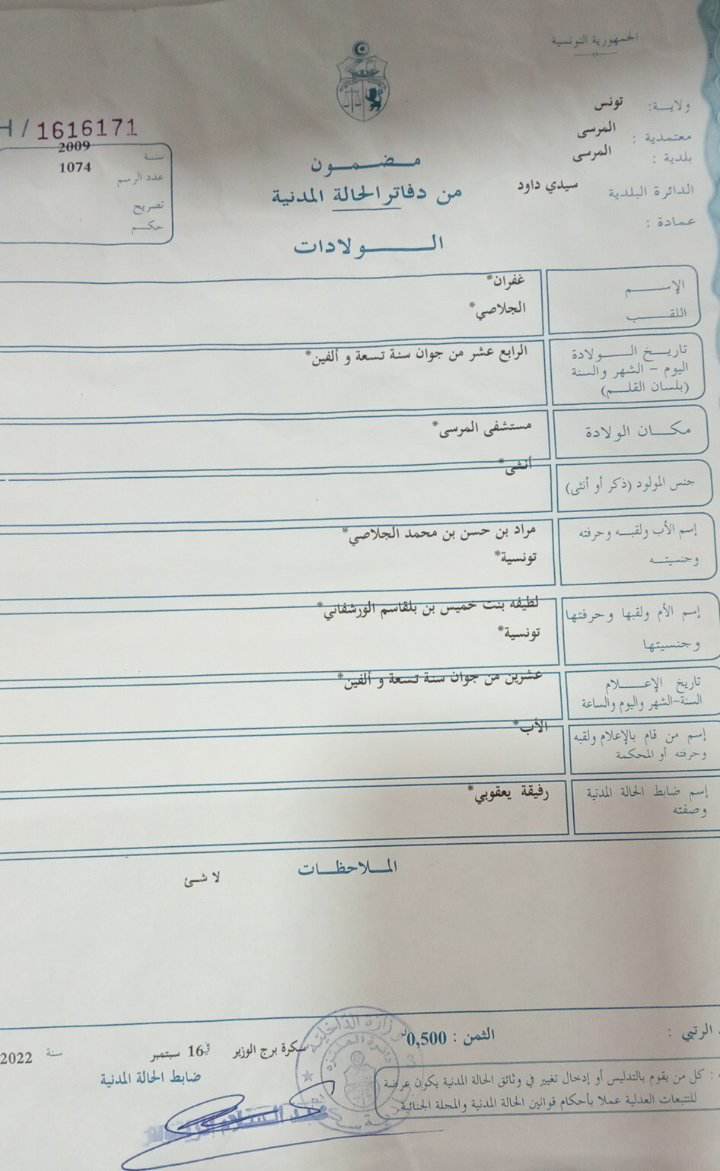 الجمهورية التونسية
ولاية: تونس
معتمدية : المرسى
بلدية : المرسى
الدائرة البلدية سيدي داود
عمادة :
H / 1616171
سنة 2009
عدد الرسم 1074
تصريح
حكم
مضمون
من دفاتر الحالة المدنية
الولادات
الإسم غفران*
اللقب الجلاصي*
تاريخ الولادة الرابع عشر من جوان سنة تسعة و ألفين*
اليوم - الشهر والسنة
(بلسان القلم)
مكان الولادة مستشفى المرسى*
جنس المولود (ذكر أو أنثى) أنثى*
إسم الأب ولقبه وحرفته مراد بن حسن بن محمد الجلاصي*
وجنسيته تونسية*
إسم الأم ولقبها وحرفتها لطيفه بنت خميس بن بلقاسم الورشفاني*
وجنسيتها تونسية*
تاريخ الإعلام عشرين من جوان سنة تسعة و ألفين*
السنة-الشهر واليوم والساعة
إسم من قام بالإعلام ولقبه الأب*
وحرفته أو المحكمة
إسم ضابط الحالة المدنية رفيقة يعقوبي*
وصفته
الملاحظات
لا شئ
الرتبي : الثمن : 0,500د
سكرة برج الوزير في 16 سبتمبر سنة 2022
ضابط الحالة المدنية
: كل من يقوم بالتدليس أو إدخال تغيير في وثائق الحالة المدنية يكون عرضة
للتتبعات العدلية عملا بأحكام قوانين الحالة المدنية والمجلة الجنائية
وزارة الداخلية
عبد السلام